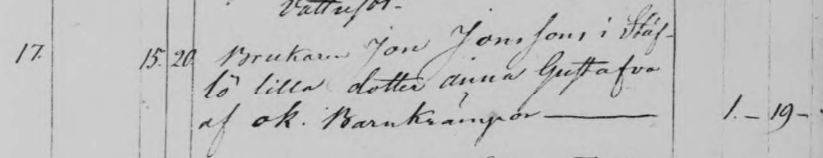 Vattusot.
17. 15. 20. Brukaren Jon Jonssons i Stäf-
lö lilla dotter Anna Gustafva
af ok. Barnkrämpor — 1. - 19 -